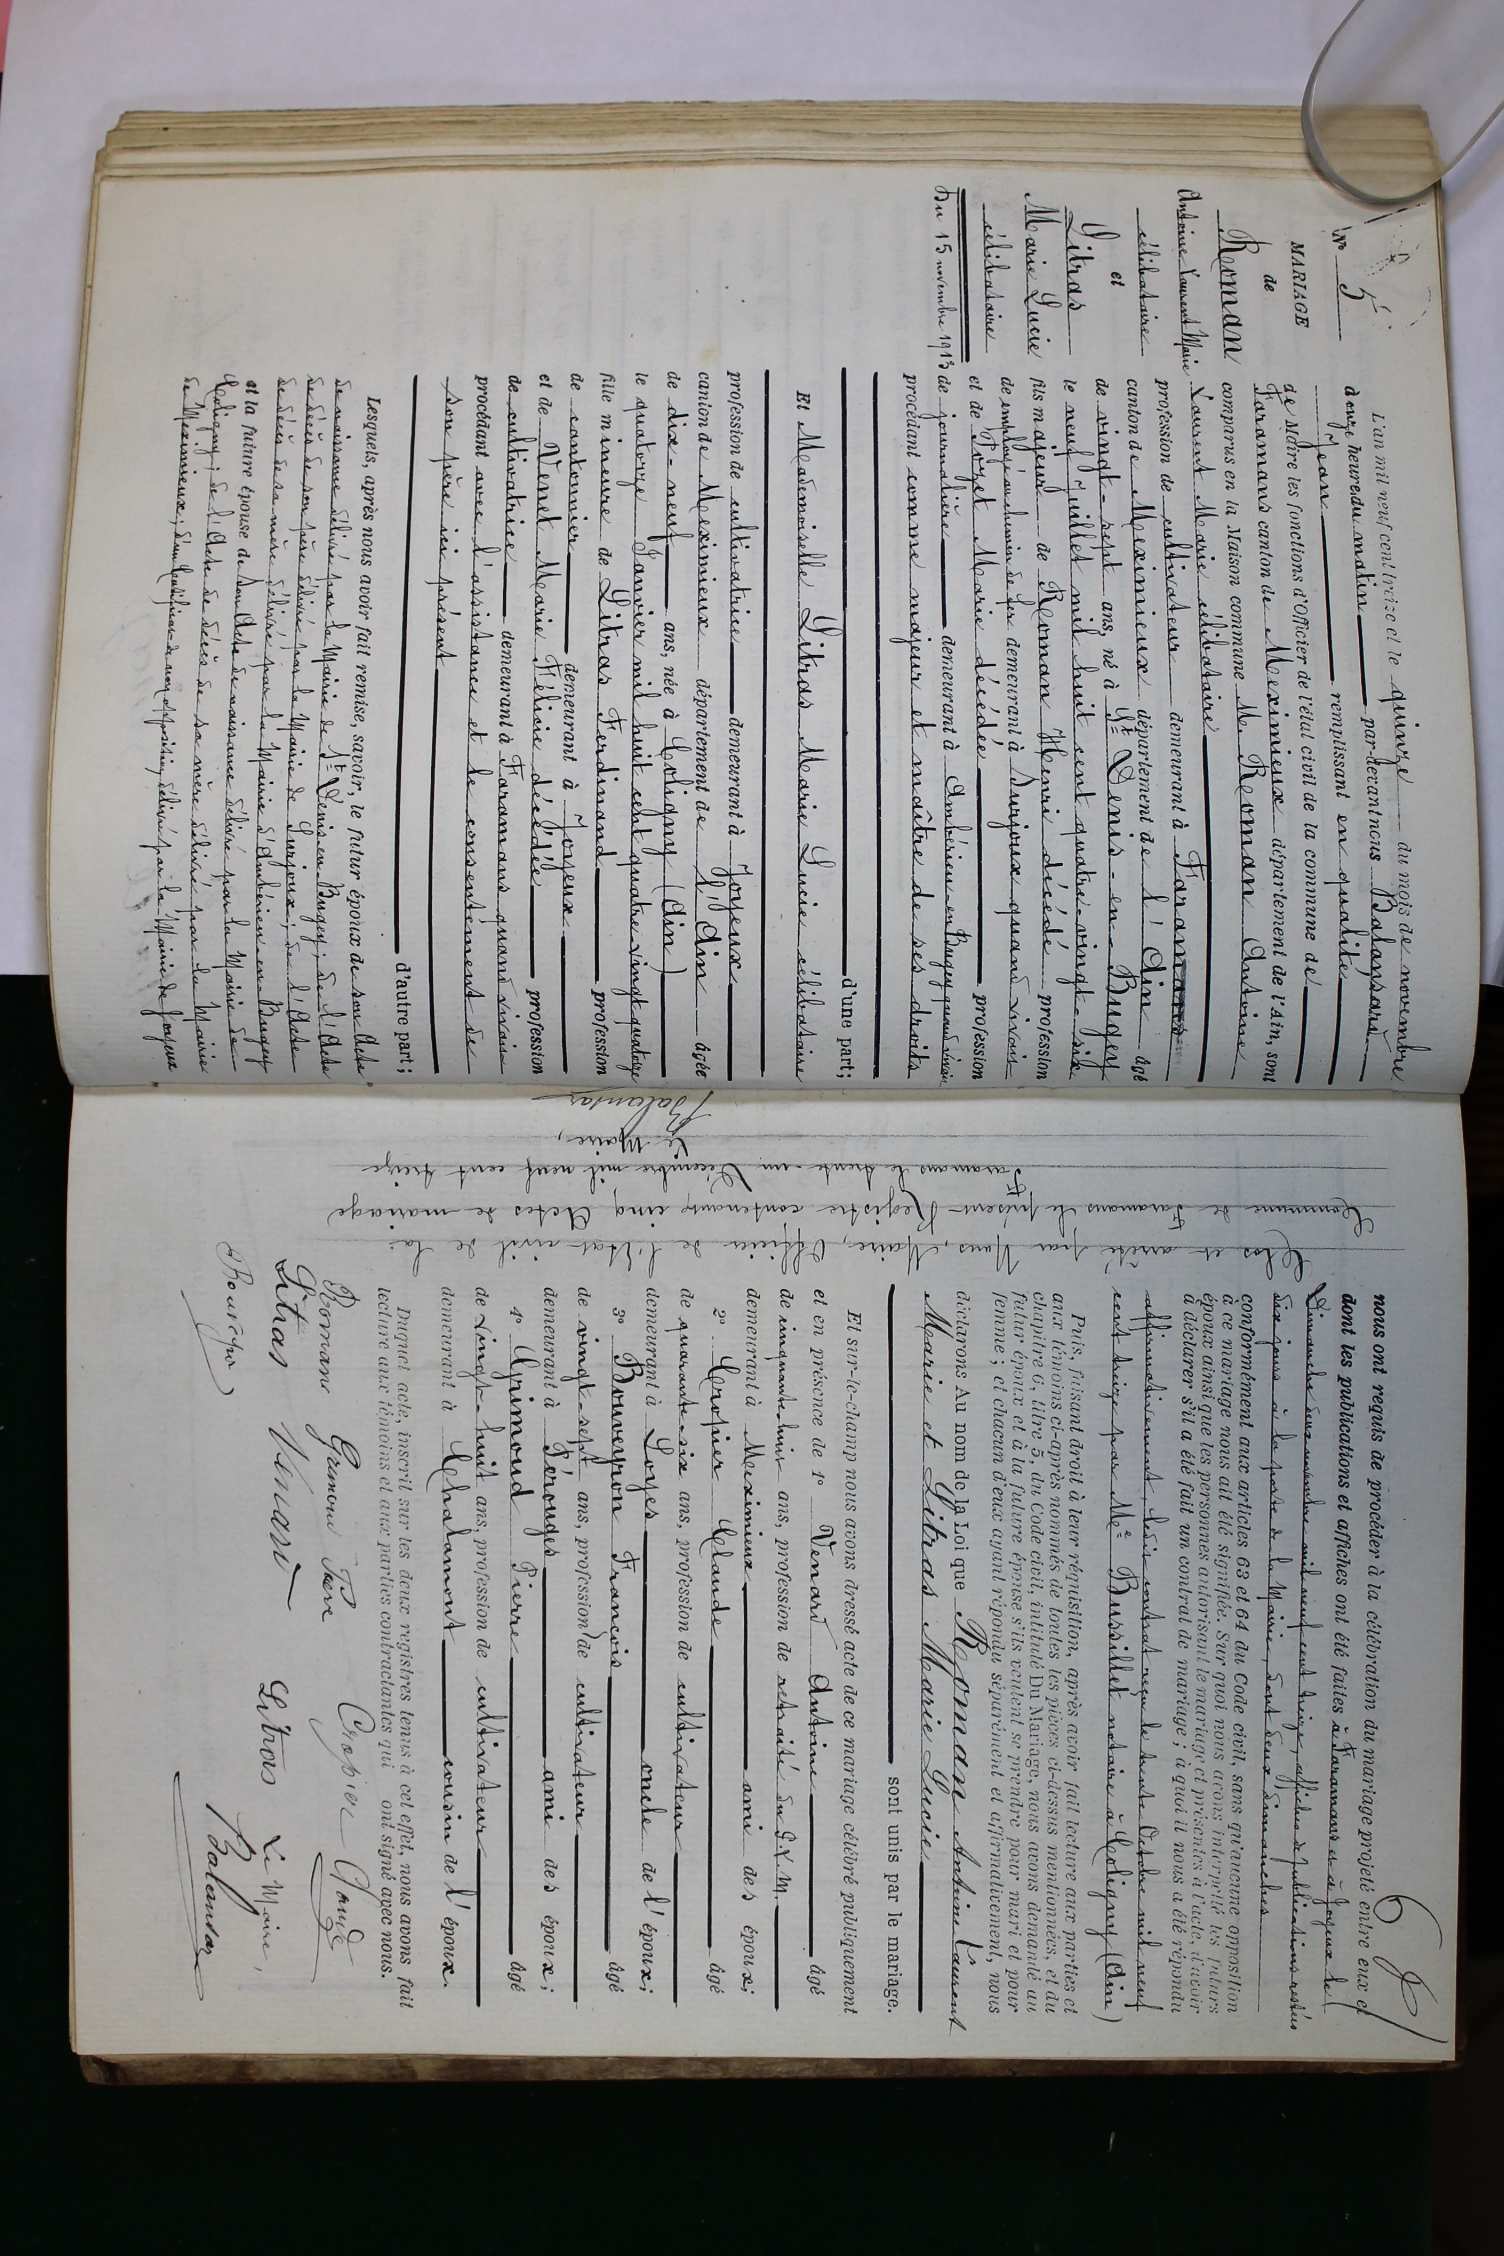 No 5
MARIAGE
de
Roman
Antoine Laurent Marie
célibataire
et
Litras
Marie Lucie
célibataire
Du 15 novembre 1913
L'an mil neuf cent treize et le quinze du mois de novembre
à onze heures du matin par-devant nous Balansard
Jean remplissant en qualité
de Maire les fonctions d'Officier de l'état civil de la commune de
Faramans canton de Meximieux département de l'Ain, sont
comparus en la Maison commune M. Roman Antoine
Laurent Marie célibataire
profession de cultivateur demeurant à Faramans
canton de Meximieux département de l'Ain âgé
de vingt-sept ans, né à St Denis-en-Bugey
le neuf Juillet mil huit cent quatre-vingt-six
fils majeur de Roman Henri décédé profession
de employé au chemin de fer demeurant à Surjoux quand vivait
et de Pozet Marie décédée profession
de journalière demeurant à Ambérieu-en-Bugey quand vivait
procédant comme majeur et maître de ses droits
d'une part;
Et Mademoiselle Litras Marie Lucie célibataire
profession de cultivatrice demeurant à Joyeux
canton de Meximieux département de l'Ain âgée
de dix-neuf ans, née à Coligny (Ain)
le quatorze Janvier mil huit cent quatre vingt quatorze
fille mineure de Litras Ferdinand profession
de cantonnier demeurant à Joyeux
et de Venet Marie Félicie décédée profession
de cultivatrice demeurant à Faramans quand vivait
procédant avec l'assistance et le consentement de
son père ici présent
d'autre part;
Lesquels, après nous avoir fait remise, savoir, le futur époux de son Acte
de naissance délivré par la Mairie de St Denis en Bugey; de l'Acte
de décès de son père délivré par la Mairie de Surjoux; de l'Acte
de décès de sa mère délivré par la Mairie d'Ambérieu en Bugey
et la future épouse de son Acte de naissance délivré par la Mairie de
Coligny; de l'Acte de décès de sa mère délivré par la Mairie
de Meximieux; d'un Certificat de non opposition délivré par la Mairie de Joyeux
6
nous ont requis de procéder à la célébration du mariage projeté entre eux et
dont les publications et affiches ont été faites à Faramans et à Joyeux le
Dimanche deux novembre mil neuf cent treize, affiches de publications restées
dix jours à la porte de la Mairie, dont deux dimanches
conformément aux articles 63 et 64 du Code civil, sans qu'aucune opposition
à ce mariage nous ait été signifiée. Sur quoi nous avons interpellé les futurs
époux ainsi que les personnes autorisant le mariage et présentes à l'acte, d'avoir
à déclarer s'il a été fait un contrat de mariage; à quoi il nous a été répondu
affirmativement, ledit contrat reçu le trente Octobre mil neuf
cent treize par Me Bussillet notaire à Coligny (Ain)
Puis, faisant droit à leur réquisition, après avoir fait lecture aux parties et
aux témoins ci-après nommés de toutes les pièces ci-dessus mentionnées, et du
chapitre 6, titre 5, du Code civil, intitulé Du Mariage, nous avons demandé au
futur époux et à la future épouse s'ils veulent se prendre pour mari et pour
femme; et chacun d'eux ayant répondu séparément et affirmativement, nous
déclarons Au nom de la Loi que Roman Antoine Laurent
Marie et Litras Marie Lucie
sont unis par le mariage.
Et sur-le-champ nous avons dressé acte de ce mariage célébré publiquement
et en présence de 1o Venard Antoine âgé
de cinquante-huit ans, profession de retraité du P.L.M.
demeurant à Meximieux ami des époux;
2o Cropier Claude âgé
de quarante-six ans, profession de cultivateur
demeurant à Loyes oncle de l'époux;
3o Bouveyron François âgé
de vingt-sept ans, profession de cultivateur
demeurant à Pérouges ami des époux;
4o Grimoud Pierre âgé
de vingt-huit ans, profession de cultivateur
demeurant à Chalamont cousin de l'époux.
Duquel acte, inscrit sur les deux registres tenus à cet effet, nous avons fait
lecture aux témoins et aux parties contractantes qui ont signé avec nous.
Romans Pierre Cropier Claude
Litras Venard Litras Le Maire,
Balansar
Clos et arrêté par Nous, Maire, Officier de l'État civil de la
Commune de Faramans le présent Registre contenant cinq Actes de mariage
Faramans le trente-un Décembre mil neuf cent treize
Le Maire,
Balansar